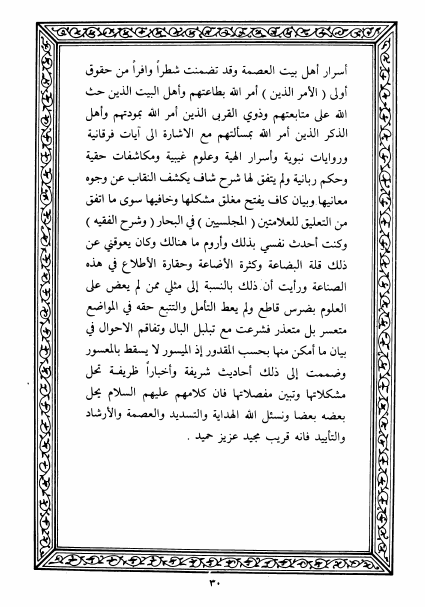 أسرار أهل بيت العصمة وقد تضمنت شطراً وافراً من حقوق
أولى ( الأمر الذين ) أمر الله بطاعتهم وأهل البيت الذين حث
الله على متابعتهم وذوي القربى الذين أمر الله بمودتهم وأهل
الذكر الذين أمر الله بمسألتهم مع الاشارة الى آيات فرقانية
وروايات نبوية وأسرار الهية وعلوم غيبية ومكاشفات حقية
وحكم ربانية ولم يتفق لها شرح شاف يكشف النقاب عن وجوه
معانيها وبيان كاف يفتح مغلق مشكلها وخافيها سوى ما اتفق
من التعليق للعلامتين ( المجلسيين ) في البحار ( وشرح الفقيه )
وكنت أحدث نفسي بذلك وأروم ما هنالك وكان يعوقني عن
ذلك قلة البضاعة وكثرة الأضاعة وحقارة الأطلاع في هذه
الصناعة ورأيت أن ذلك بالنسبة إلى مثلي ممن لم يعض على
العلوم بضرس قاطع ولم يعط التأمل والتتبع حقه في المواضع
متعسر بل متعذر فشرعت مع تبلبل البال وتفاقم الاحوال في
بيان ما أمكن منها بحسب المقدور إذ الميسور لا يسقط بالمعسور
وضممت إلى ذلك أحاديث شريفة وأخباراً ظريفة تحل
مشكلاتها وتبين مفصلاتها فان كلامهم عليهم السلام يحل
بعضه بعضا ونسئل الله الهداية والتسديد والعصمة والأرشاد
والتأييد فانه قريب مجيد عزيز حميد .
٣٠